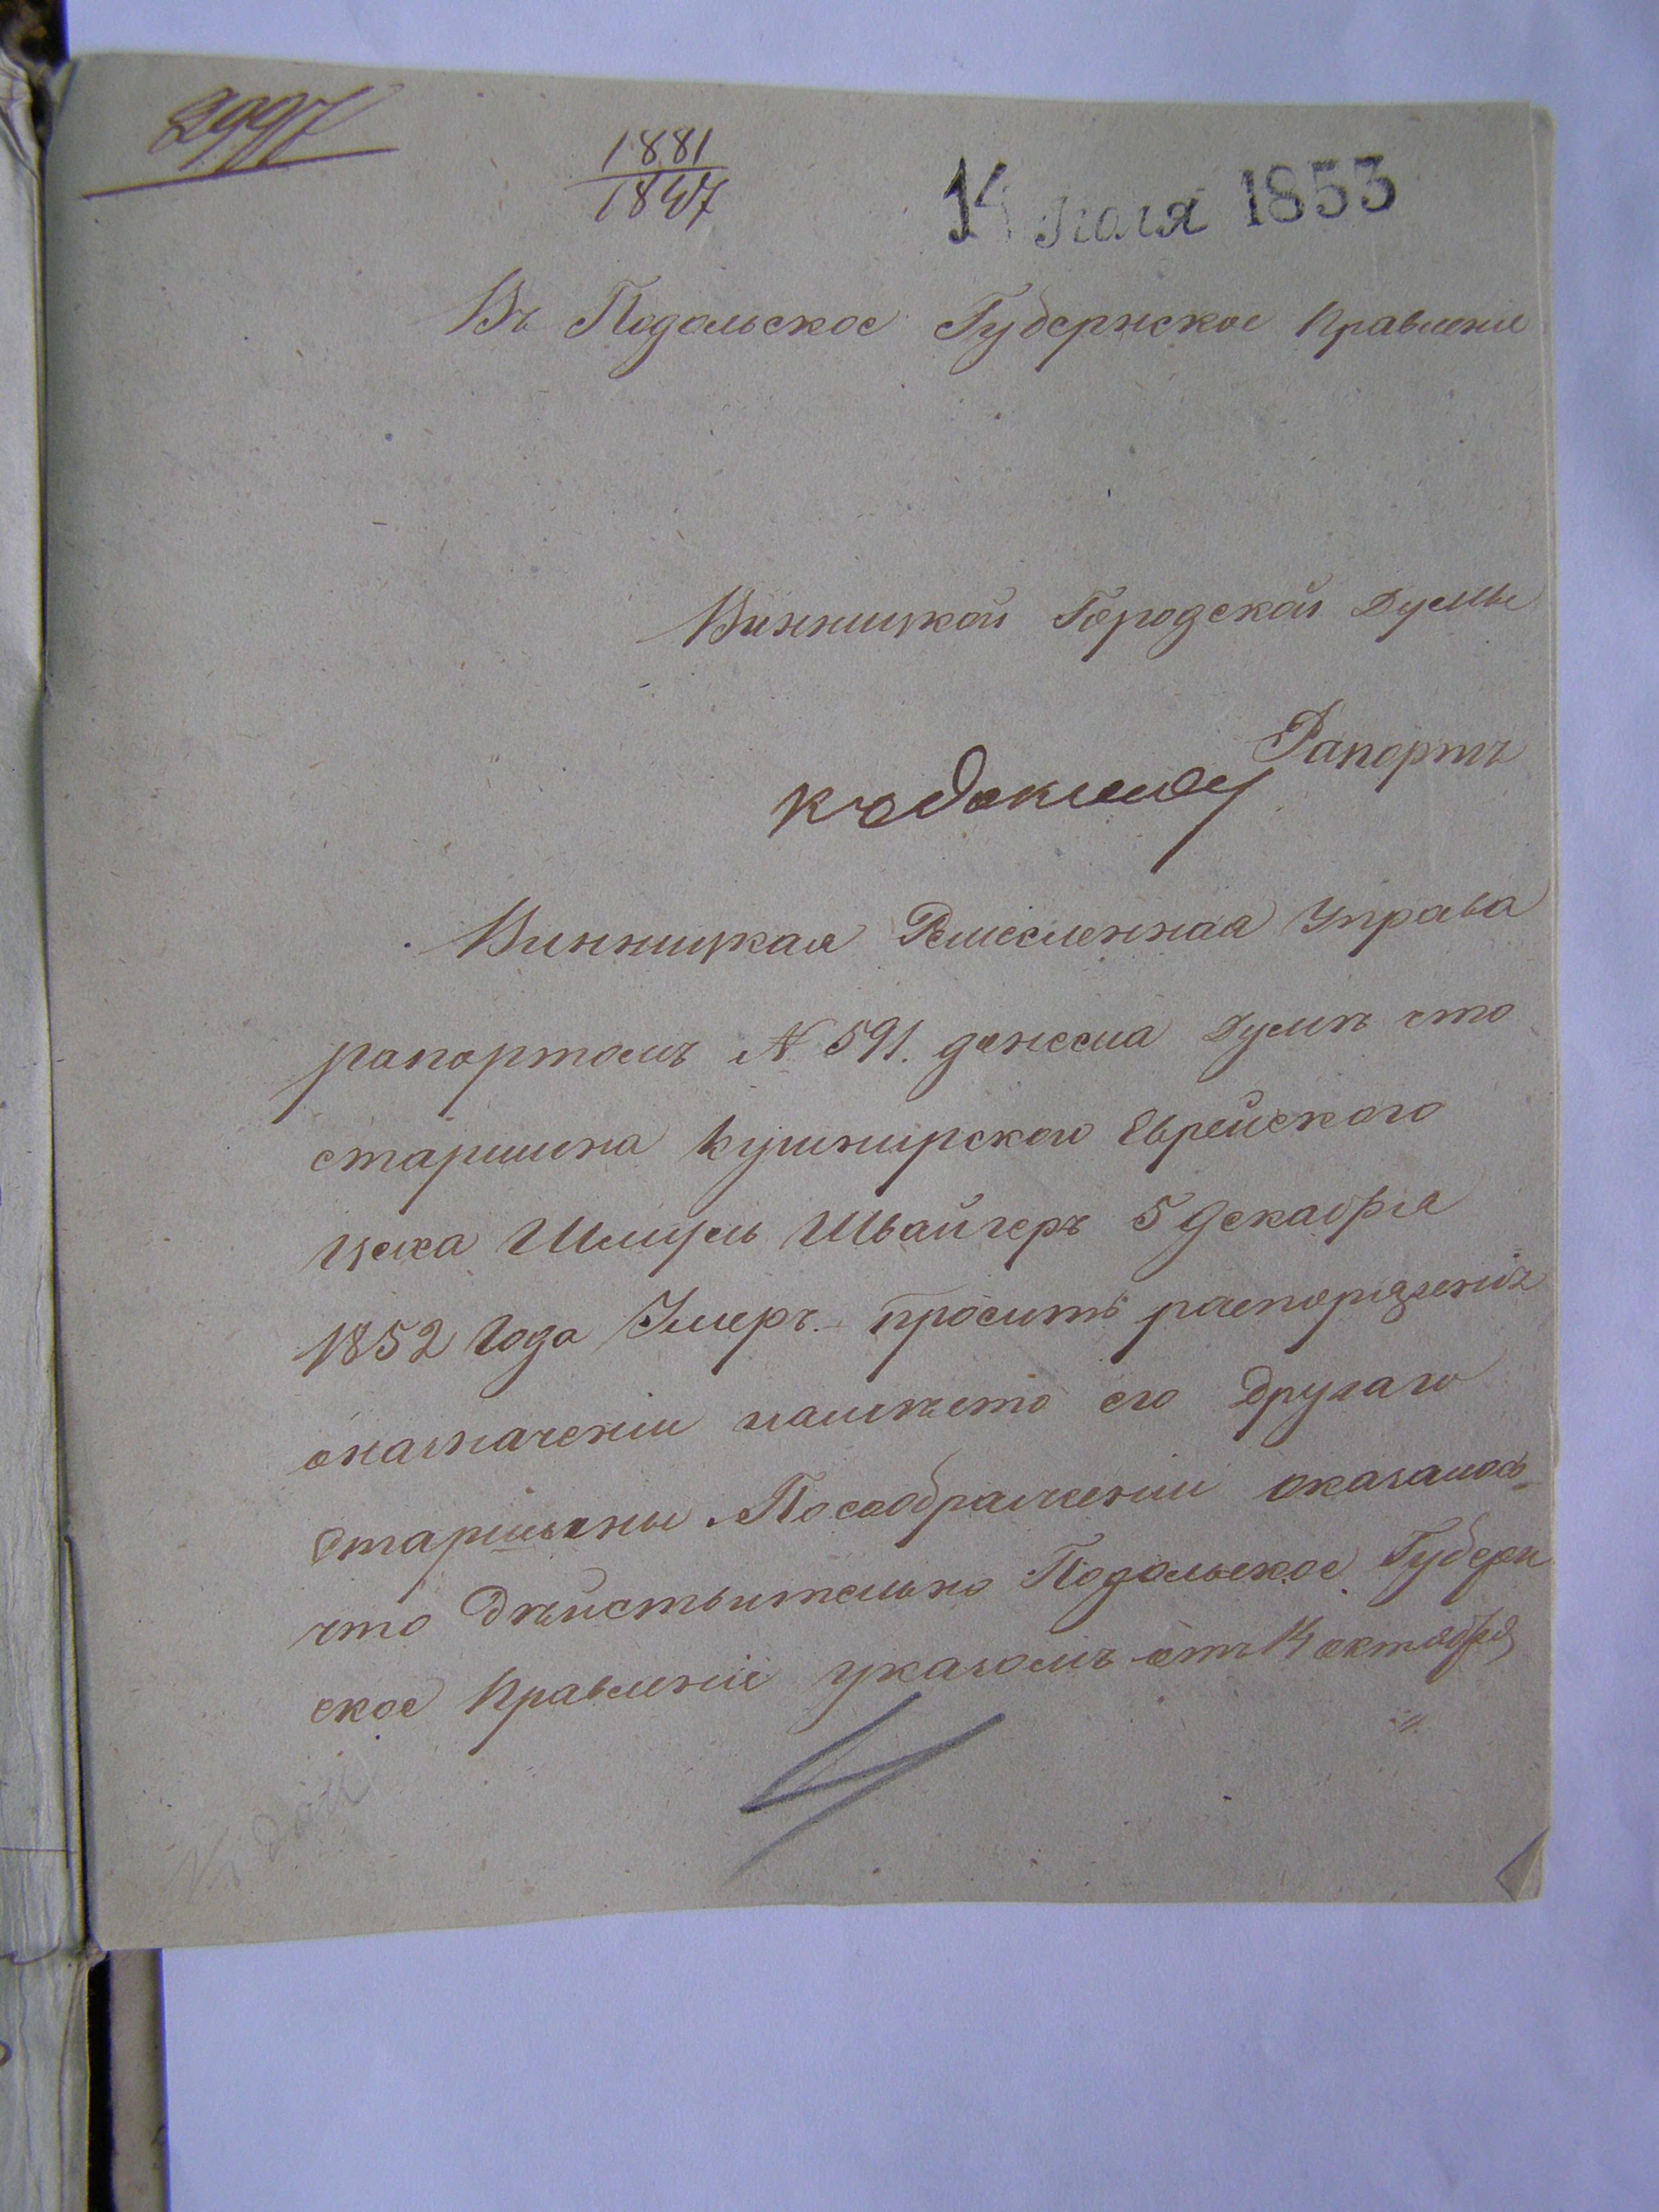 2997
1881
1847
14 Июля 1853
Въ Подольское Губернское Правленіе
Винницкой Городской Думы
Рапортъ
къ докладу
Винницкая Ремесленная Управа
рапортомъ № 591. донесла Думѣ что
старшина кушнирского Еврейского
цеха Шмуль Швайгеръ 5 декабря
1852 года Умеръ. проситъ распоряженія
оназначеніи наместо его Другаго
Старшины. Посоображеніи оказалось
что Дѣйствительно Подольское Губерн
ское Правленіе указомъ отъ 14 октября